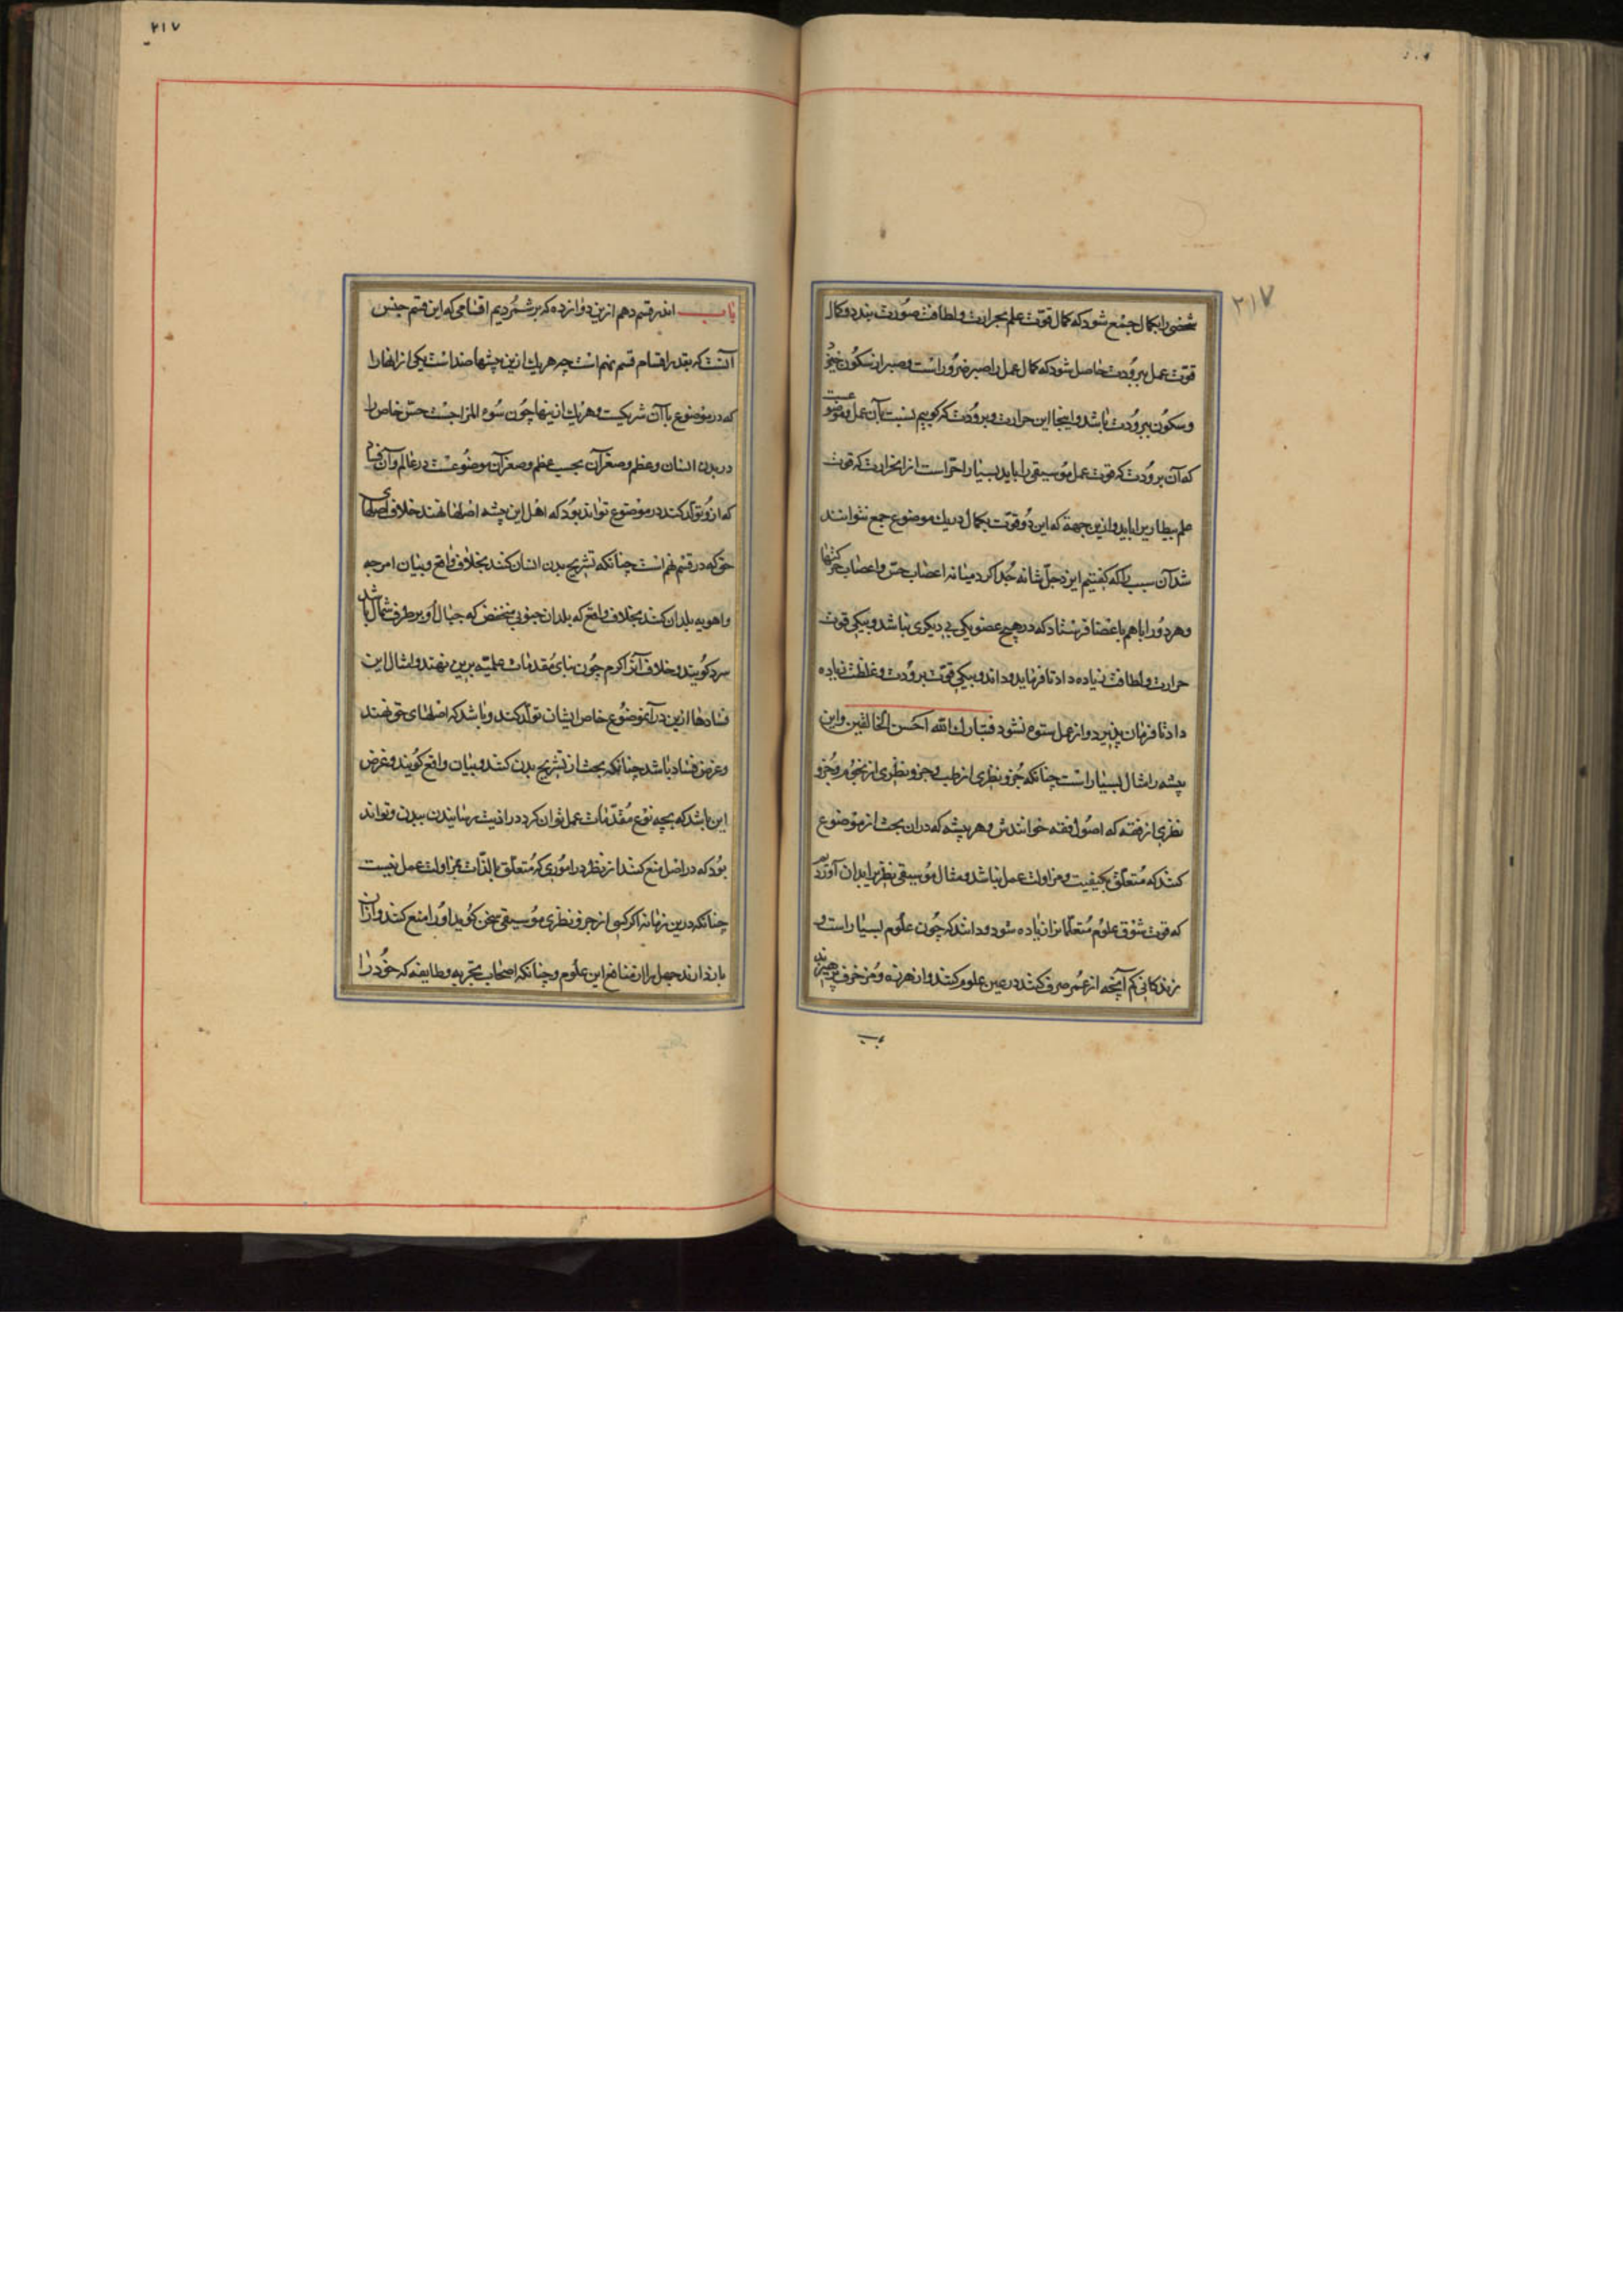 ۲۱۷
شخصی را بکمال جمع شود که کمال قوت علم بحرارت و لطافت صورت بندد و کمال
قوت عمل ببرودت حاصل شود که کمال عمل را صبر ضرور است و صبر از سکون خیزد
و سکون ببرودت باشد و اینجا این حرارت و برودت که گوییم نسبت بآن عمل و
که آن برودت که قوت عمل موسیقی را باید بسیار احر است از آنحرارت که قوت
علم بیطاری را باید و ازین جهة که این دو قوت بکمال در یک موضوع جمع نتوانند
شد آن سبب را که گفتیم ایزد جل شانه جدا کرد میانه اعصاب حس و اعصاب
و هر دو را با هم باعضا فرستاد که در هیچ عضو یکی بی دیگری نباشد و بیکی قوت
حرارت و لطافت زیاده داد تا فرماید و داند و بیکی قوت برودت و غلظت زیاده
داد تا فرمان پذیرد و از عمل ستوه نشود فتبارك الله احسن الخالقین و این
پیشه را مثال بسیار است چنانکه جزو نظری از طب و جزو نظری از نجوم و جزو
نظری از فقه که اصول فقه خوانندش و هر پیشه که در ان بحث از موضوع
کنند که متعلق بکیفیت و مزاولت عمل نباشد و مثال موسیقی نظری را بدان آوردم
که قوت شوق علوم متعلمانرا زیاده شود و دانند که چون علوم بسیار است و
زندکانی کم آنچه از عمر صرف کنند در عین علوم کنند و از هرزه و مزخرف پرهیزند
۲۱۷
باب اندر قسم دهم ازین دوازده که برشمردیم اقسامی که این قسم جنس
آنست که بقدر اقسام قسم نهم است چه هر یك ازین پیشها ضد است یکی از انها را
که در موضوع با آن شریکست و هر یك از ینها چون سوء المزاجست حس خاص را
در بدن انسان و عظم و صغر آن بحسب عظم و صغر آن موضوعست در عالم و آن فساد
که ازو تولد کند در موضوع تواند بود که اهل این پیشه اصلها نهند خلاف اصلهای
حق که در قسم نهم است چنانکه تشریح بدن انسان کنند بخلاف واقع و بیان امزجه
و اهویه بلدان کنند بخلاف واقع که بلدان جنوبی منخفض که جبال او بر طرف شمال باشد
سرد گویند و خلاف آنرا گرم چون بنای مقدمات علمیه برین نهند و امثال این
فسادها ازین در آنموضوع خاص ایشان تولد کند و باشد که اصلهای حق نهند
و غرض فساد باشد چنانکه بحث از تشریح بدن کنند و بیان واقع گویند و غرض
این باشد که بچه نوع مقدمات عمل توان کرد در اذیت رسانیدن ببدن و تواند
بود که در اصل منع کنند از نظر در اموری که متعلق بالذات بمزاولت عمل نیست
چنانکه درین زمانه اگر کسی از جزو نظری موسیقی سخن گوید او را منع کنند و از آن
باز دارند جهل را از منافع این علوم و چنانکه اصحاب تجربه و طایفه که خود را